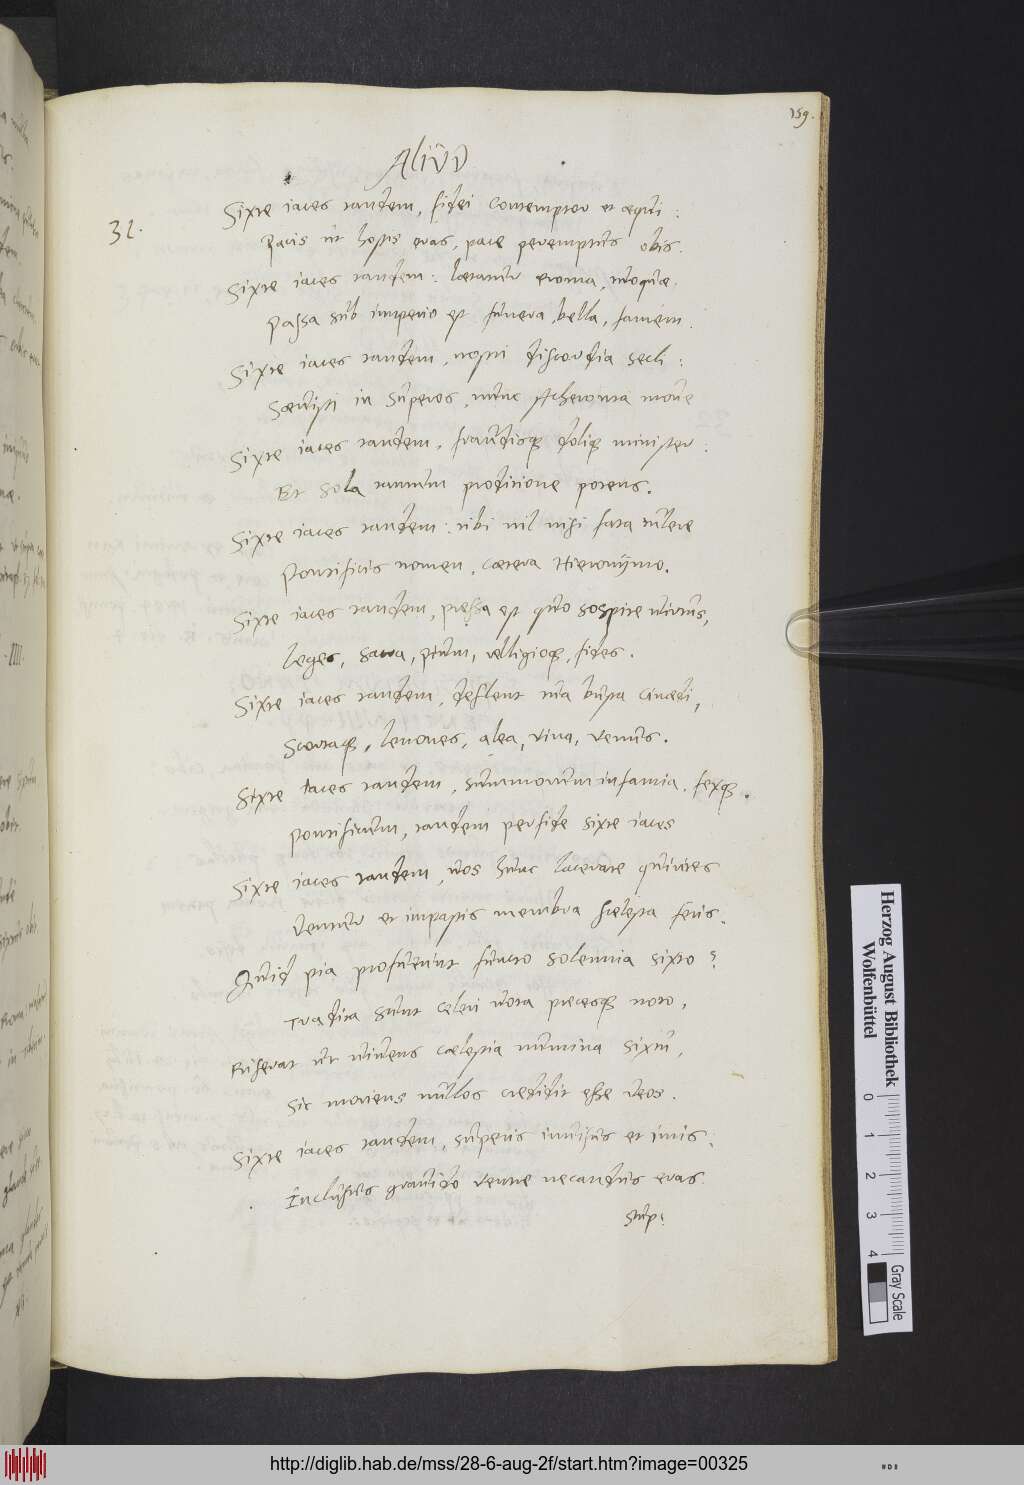 159.
Aliud
32.
Sixte iaces tandem, fidei contemptor et aequi:
Pacis ut hostis eras, pace peremptus obis.
Sixte iaces tandem: laetantur
Passa sub imperio est funera, bella, famem.
Sixte iaces tandem, nostri discordia secli:
Saevisti in superos, nunc Acheronta move
Sixte iaces tandem, fraudisq doliq minister:
Et sola tantum proditione potens.
Sixte iaces tandem: tibi nil nisi fata tulere
Pontificis nomen, caetera Hieronymo.
Sixte iaces tandem, pressa est quo sospite virtus,
leges, sacra, relligioq, fides.
Sixte iaces tandem, deflent tua busta cinaedi,
Scortaq, lenones, alea, vina, venus.
Sixte iaces tandem, summorum infamia, fexq.
pontificum, tandem perfide sixte iaces
Sixte iaces tandem, vos hunc lacerare quirites
et impastis membra scelesta feris.
Quid pia profuerunt functo solennia sixto?
Tradita sunt celeri vota precesq noto,
Riserat ut vivens caelestia numina Sixtus,
Sic moriens nullos credidit esse deos.
Sixte iaces tandem, superis invisus et imis:
Inclusus gravido ventre necandus eras.
Sup:
Herzog August Bibliothek
Wolfenbüttel
0 1 2 3 4
Gray Scale
http://diglib.hab.de/mss/28-6-aug-2f/start.htm?image=00325